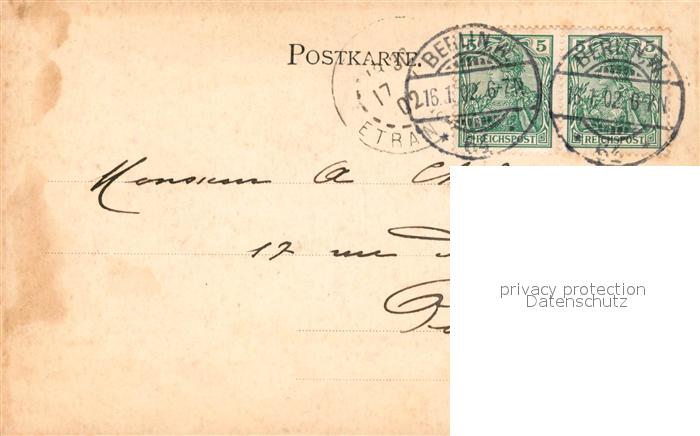 POSTKARTE.
5 5 5 5
REICHSPOST REICHSPOST
BERLIN.W.
16.1.02.6-7N.
BERLIN.W.
1.02.6-7N.
17
02
ETRAN
Monsieur A
17 rue
privacy protection
Datenschutz